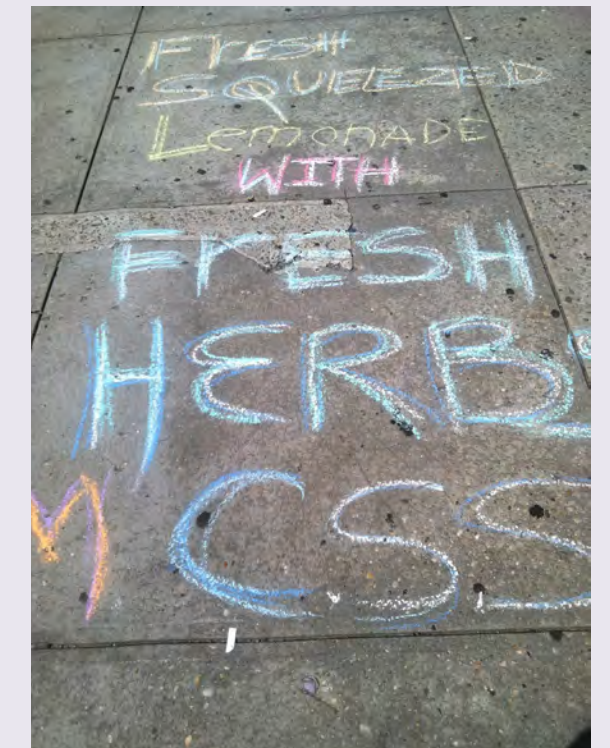 FrESH
SQUEEZED
LemonADE
WITH
FrESH
HERBS
M CSS